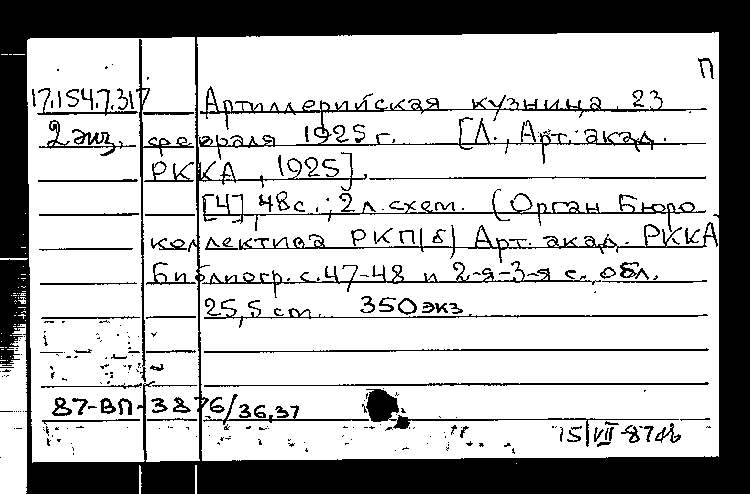 П
17.154.7.317 Артиллерийская кузница 23
2 экз. февраля 1925 г. [Л., Арт. акад.
РККА, 1925].
[4], 48 с.; 2 л. схем. (Орган Бюро
коллектива РКП(б) Арт. акад. РККА
Библиогр. с. 47-48 и 2-я-3-я с. обл.
25,5 cm. 350 экз.
87-ВП-3876/36,37
15/VII-87